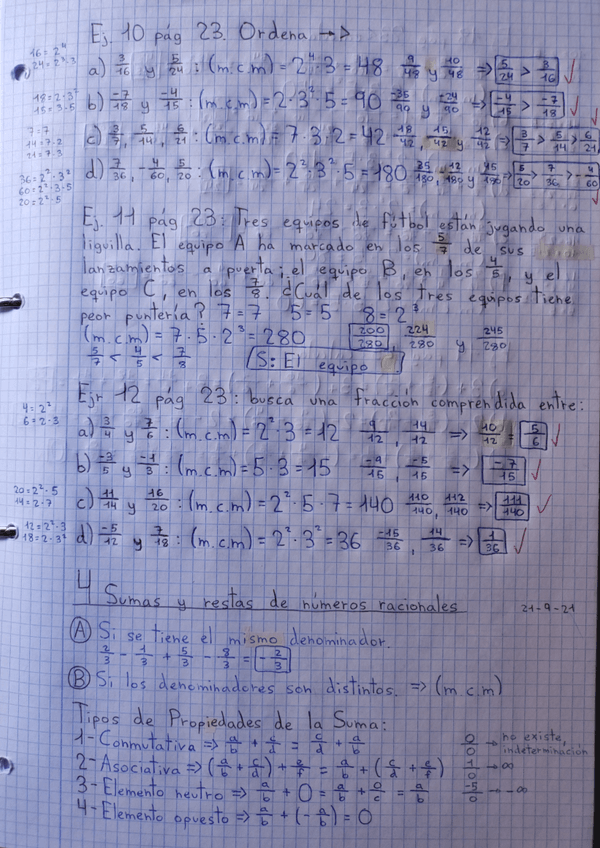 Ej. 10 pág 23. Ordena →
16 = 2⁴
24 = 2³·3
a) 3/16 y 5/24 : (m.c.m) = 2⁴·3 = 48 9/48 y 10/48 ⇒ 5/24 > 3/16 ✓
18 = 2·3²
15 = 3·5
b) -7/18 y -4/15 : (m.c.m) = 2·3²·5 = 90 -35/90 y -24/90 ⇒ -4/15 > -7/18 ✓
7 = 7
14 = 7·2
21 = 7·3
c) 3/7, 5/14, 6/21 : (m.c.m) = 7·3·2 = 42 18/42, 15/42 y 12/42 ⇒ 3/7 > 5/14 > 6/21 ✓
36 = 2²·3²
60 = 2²·3·5
20 = 2²·5
d) 7/36, -4/60, 5/20 : (m.c.m) = 2²·3²·5 = 180 35/180, -12/180 y 45/180 ⇒ 5/20 > 7/36 > -4/60 ✓
Ej. 11 pág 23: Tres equipos de fútbol están jugando una
liguilla. El equipo A ha marcado en los 5/7 de sus
lanzamientos a puerta; el equipo B, en los 4/5, y el
equipo C, en los 7/8. ¿Cuál de los tres equipos tiene
peor puntería? 7 = 7 5 = 5 8 = 2³
(m.c.m) = 7·5·2³ = 280 200/280, 224/280 y 245/280
5/7 < 4/5 < 7/8 S: El equipo
Ejr 12 pág 23: busca una fracción comprendida entre:
4 = 2²
6 = 2·3
a) 3/4 y 7/6 : (m.c.m) = 2²·3 = 12 9/12, 14/12 ⇒ 10/12 = 5/6 ✓
b) -3/5 y -1/3 : (m.c.m) = 5·3 = 15 -9/15, -5/15 ⇒ -7/15 ✓
20 = 2²·5
14 = 2·7
c) 11/14 y 16/20 : (m.c.m) = 2²·5·7 = 140 110/140, 112/140 ⇒ 111/140 ✓
12 = 2²·3
18 = 2·3²
d) -5/12 y 7/18 : (m.c.m) = 2²·3² = 36 -15/36, 14/36 ⇒ 1/36 ✓
4 Sumas y restas de números racionales 21-9-21
A Si se tiene el mismo denominador.
2/3 - 1/3 + 5/3 - 8/3 = -2/3
B Si los denominadores son distintos. ⇒ (m.c.m)
Tipos de Propiedades de la Suma:
1-Conmutativa ⇒ a/b + c/d = c/d + a/b
0/0 → no existe, indeterminación
2-Asociativa ⇒ (a/b + c/d) + e/f = a/b + (c/d + e/f)
1/0 → ∞
3-Elemento neutro ⇒ a/b + 0 = a/b + 0/c = a/b
-5/0 → -∞
4-Elemento opuesto ⇒ a/b + (-a/b) = 0